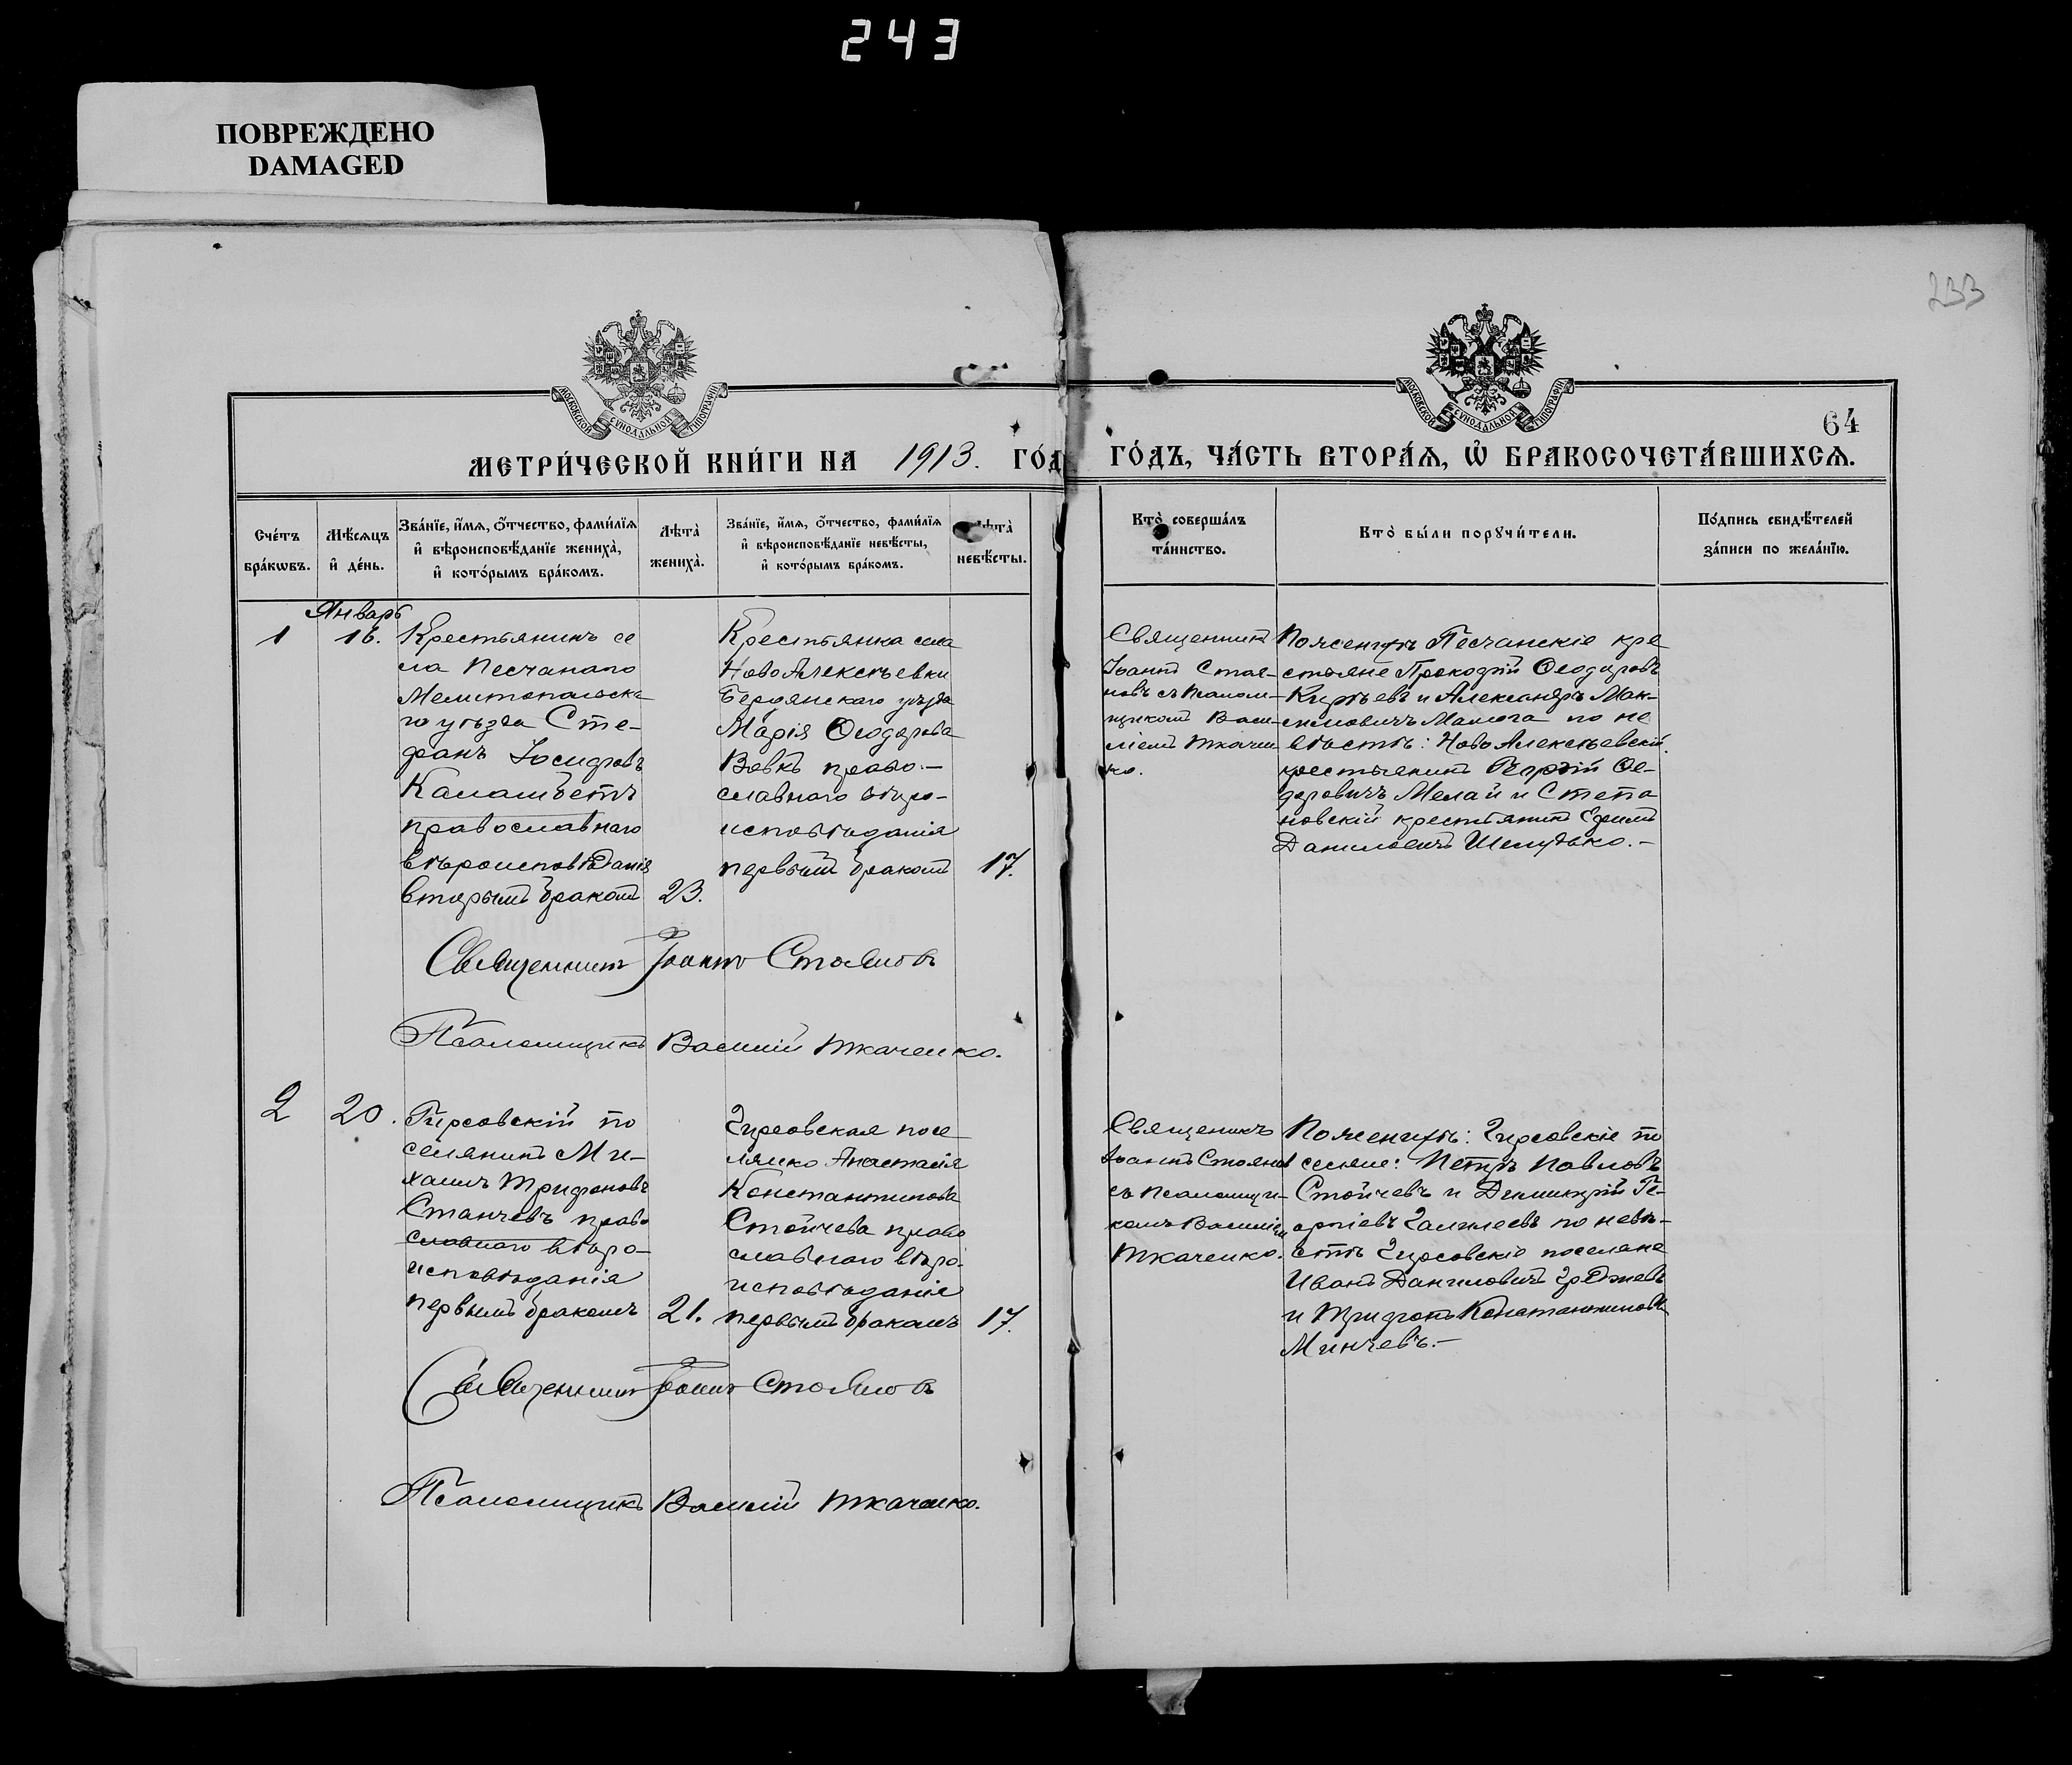 243
ПОВРЕЖДЕНО
DAMAGED
233
МОСКОВСКОЙ СѴНОДАЛЬНОЙ ТИПОГРАФІИ
МОСКОВСКОЙ СѴНОДАЛЬНОЙ ТИПОГРАФІИ
64
МЕТРИ́ЧЕСКОЙ КНИ́ГИ НА 1913. ГО́Д
ГО́ДЪ, ЧА́СТЬ ВТОРА́Ѧ, Ѽ БРАКОСОЧЕТА́ВШИХСѦ.
Сче́тъ
бра́кѡвъ.
Мѣ́сѧцъ
и҆ де́нь.
Зва́нїе, и҆́мѧ, ѻ҆́тчество, фами́лїѧ
и҆ вѣроисповѣ́данїе жениха̀,
и҆ кото́рымъ бра́комъ.
Лѣ́та̀
жениха̀.
Зва́нїе, и҆́мѧ, ѻ҆́тчество, фами́лїѧ
и҆ вѣроисповѣ́данїе невѣ́сты,
и҆ кото́рымъ бра́комъ.
Лѣта̀
невѣ́сты.
Кто̀ соверша́лъ
та́инство.
Кто̀ бы́ли порꙋчи́тели.
По́дпись свидѣ́телей
за́писи по жела́нїю.
1
Январь
16.
Крестьянинъ се
ла Песчанаго
Мелитопольска
го уѣзда Сте-
фанъ Іосифовъ
Каламбетъ
православнаго
вѣроисповѣданія
вторымъ бракомъ
23.
Крестьянка села
Ново Алексѣевки
Бердянскаго уѣзда
Марія Ѳеодорова
Вовкъ право-
славнаго вѣро-
исповѣданія
первымъ бракомъ
17.
Священникъ
Іоаннъ Стоя-
новъ съ псалом-
щикомъ Васи-
ліемъ Ткачен
ко.
Песчанскіе кре
стьяне Прокофій Ѳеодоровъ
и Александръ Мак-
симовичъ по не
вѣстѣ: Ново Алексѣевскій
крестьянинъ Георгій Ѳе-
доровичъ Мелай и Степа
новскій крестьянинъ Ефимъ
Даниловичъ Шелудько.-
Священникъ Іоаннъ Стояновъ
Псаломщикъ Василій Ткаченко.
2
20.
Гирсовскій по
селянинъ Ми-
хаилъ Трифоновъ
Станчевъ право
славнаго вѣро-
исповѣданія
первымъ бракомъ
21.
Гирсовская посе
лянка Анастасія
Константинова
Стойчева право
славнаго вѣро-
исповѣданія
первымъ бракомъ
17.
Священникъ
Іоаннъ Стояновъ
съ псаломщи-
комъ Василіемъ
Ткаченко.
По женихѣ: Гирсовскіе по
селяне: Петръ Павловъ
Стойчевъ и Димитрій Ге-
оргіевъ по невѣ-
стѣ Гирсовскіе поселяне
Иванъ Даниловичъ
и Трифонъ Константиновъ
Минчевъ.-
Священникъ Іоаннъ Стояновъ
Псаломщикъ Василій Ткаченко.